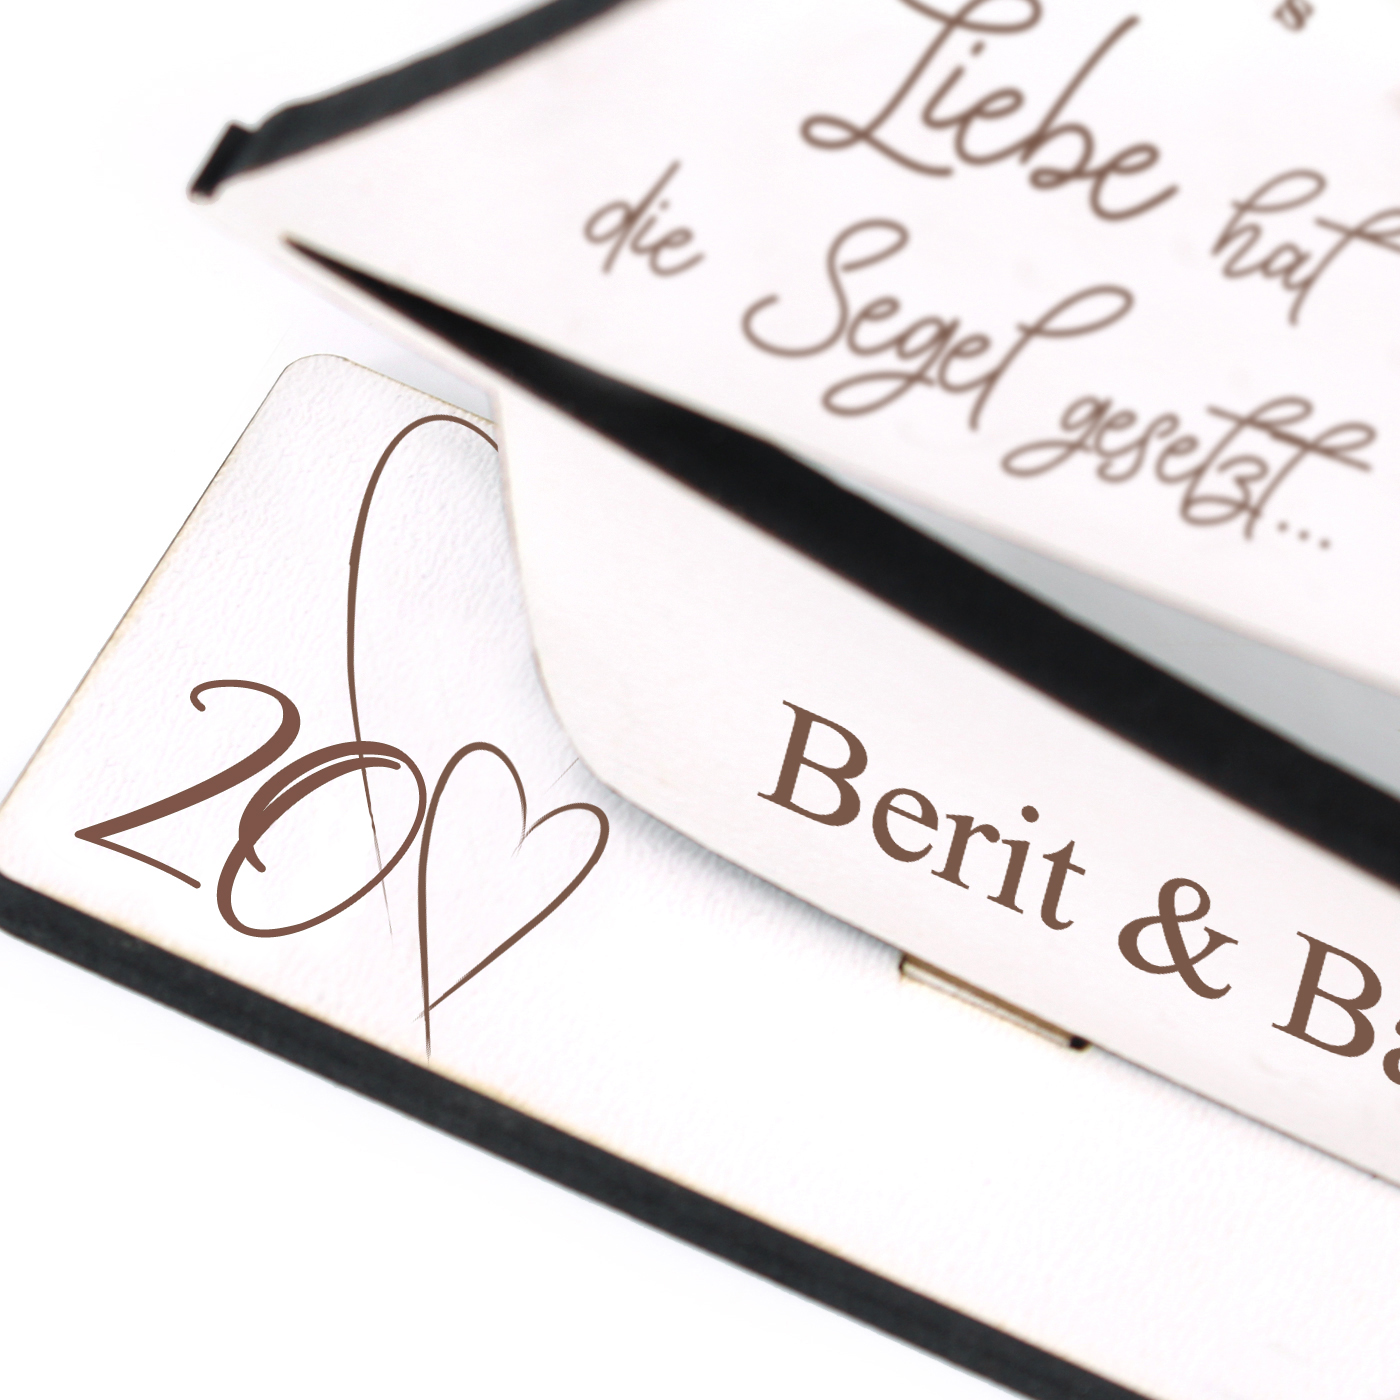 s
Liebe hat
die Segel gesetzt...
Berit & Ba
20